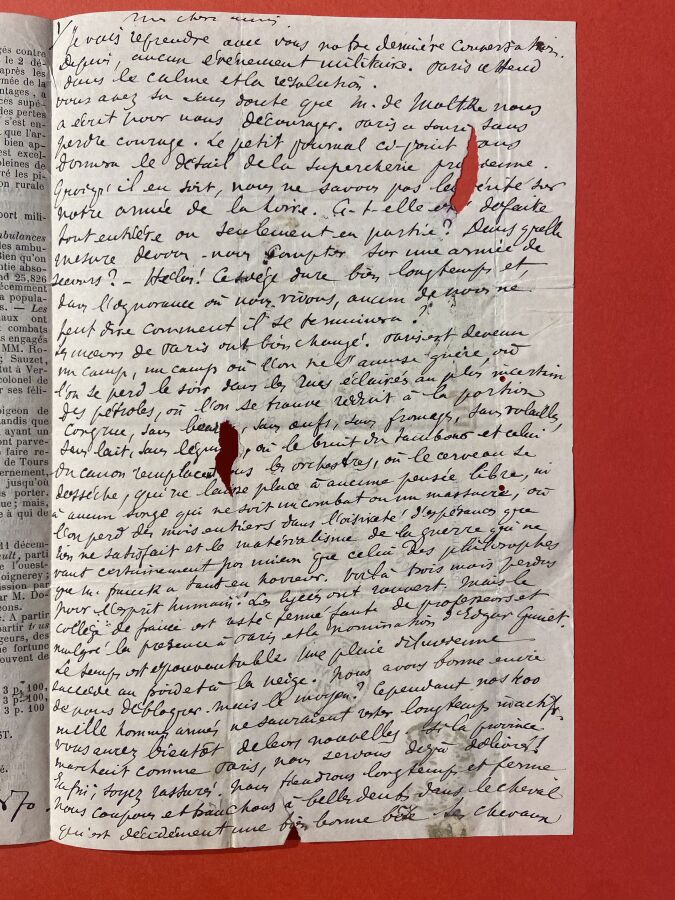 Mon cher ami,
Je vais reprendre avec vous notre dernière conversation.
Depuis, aucun événement militaire. Paris attend
dans le calme et la résolution.
Vous avez su sans doute que M. de Moltke nous
a écrit pour nous décourager. Paris a souri sans
perdre courage. Le petit journal ci-joint vous
donnera le détail de la supercherie prussienne.
Quoiqu'il en soit, nous ne savons pas la vérité sur
notre armée de la Loire. A-t-elle été défaite
tout entière ou seulement en partie? Dans quelle
mesure devons-nous compter sur une armée de
secours? - Hélas! Ce siège dure bien longtemps et,
dans l'ignorance où nous vivons, aucun de nous ne
peut dire comment il se terminera?
Les mœurs de Paris ont bien changé. Paris est devenu
un camp, un camp où l'on ne s'amuse guère, où
l'on se perd le soir dans les rues éclairées au plus incertain
des pétroles, où l'on se trouve réduit à la portion
congrue, sans beurre, sans œufs, sans fromages, sans volailles,
sans lait, sans légumes, où le bruit du tambour et celui
du canon remplacent tous les orchestres, où le cerveau se
dessèche, qui ne laisse place à aucune pensée libre, ni
à aucun songe qui ne soit un combat ou un massacre, où
l'on perd des mois entiers dans l'oisiveté d'espérances que
rien ne satisfait et le matérialisme de la guerre qui ne
vaut certainement pas mieux que celui des philosophes
que M. Franck a tant en horreur. Voilà trois mois perdus
pour l'esprit humain! Les lycées ont rouvert, mais le
collège de France est resté fermé faute de professeurs et
malgré la présence à Paris et la nomination d'Edgar Quinet.
Le temps est épouvantable. Une pluie diluvienne
succède au froid et à la neige. Nous avons bonne envie
de nous débloquer. Mais le moyen? Cependant nos 400
mille hommes armés ne sauraient rester longtemps inactifs.
Vous aurez bientôt de leurs nouvelles. Si la province
marchait comme Paris, nous serions déjà délivrés!
Enfin, soyez rassurés. Nous tiendrons longtemps et ferme
Nous coupons et tranchons à belles dents dans le cheval
qui est décidément une bien bonne bête. Les chevaux
gés contre
le 2 dé-
après les
rmée de la
ntages, a
ces supé-
des pertes
s'est en-
que l'ar-
bien ap-
est excel-
pleines de
vré les pi-
on rurale
port mili-
mbulances
des ambu-
Bien qu'on
ntie abso-
nd 25,826
récemment
a popula-
s. — Les
aux ont
combats
s engagés
MM. Ro-
; Sauzet,
tut à Ver-
colonel de
er ses féli-
pigeon de
tandis que
ayant un
ont parve-
faire re-
de Tours
ernement,
jusqu'où
porter.
que; mais,
e à qui de
11 décem-
ault, parti
l'ouest-
oignerey;
mission par
ar M. Do-
cons.
c. A partir
partir tous
geurs, des
ne fortune
ouvent de
3 p. 100,
3 p. 100,
3 p. 100
ST.
é.
870